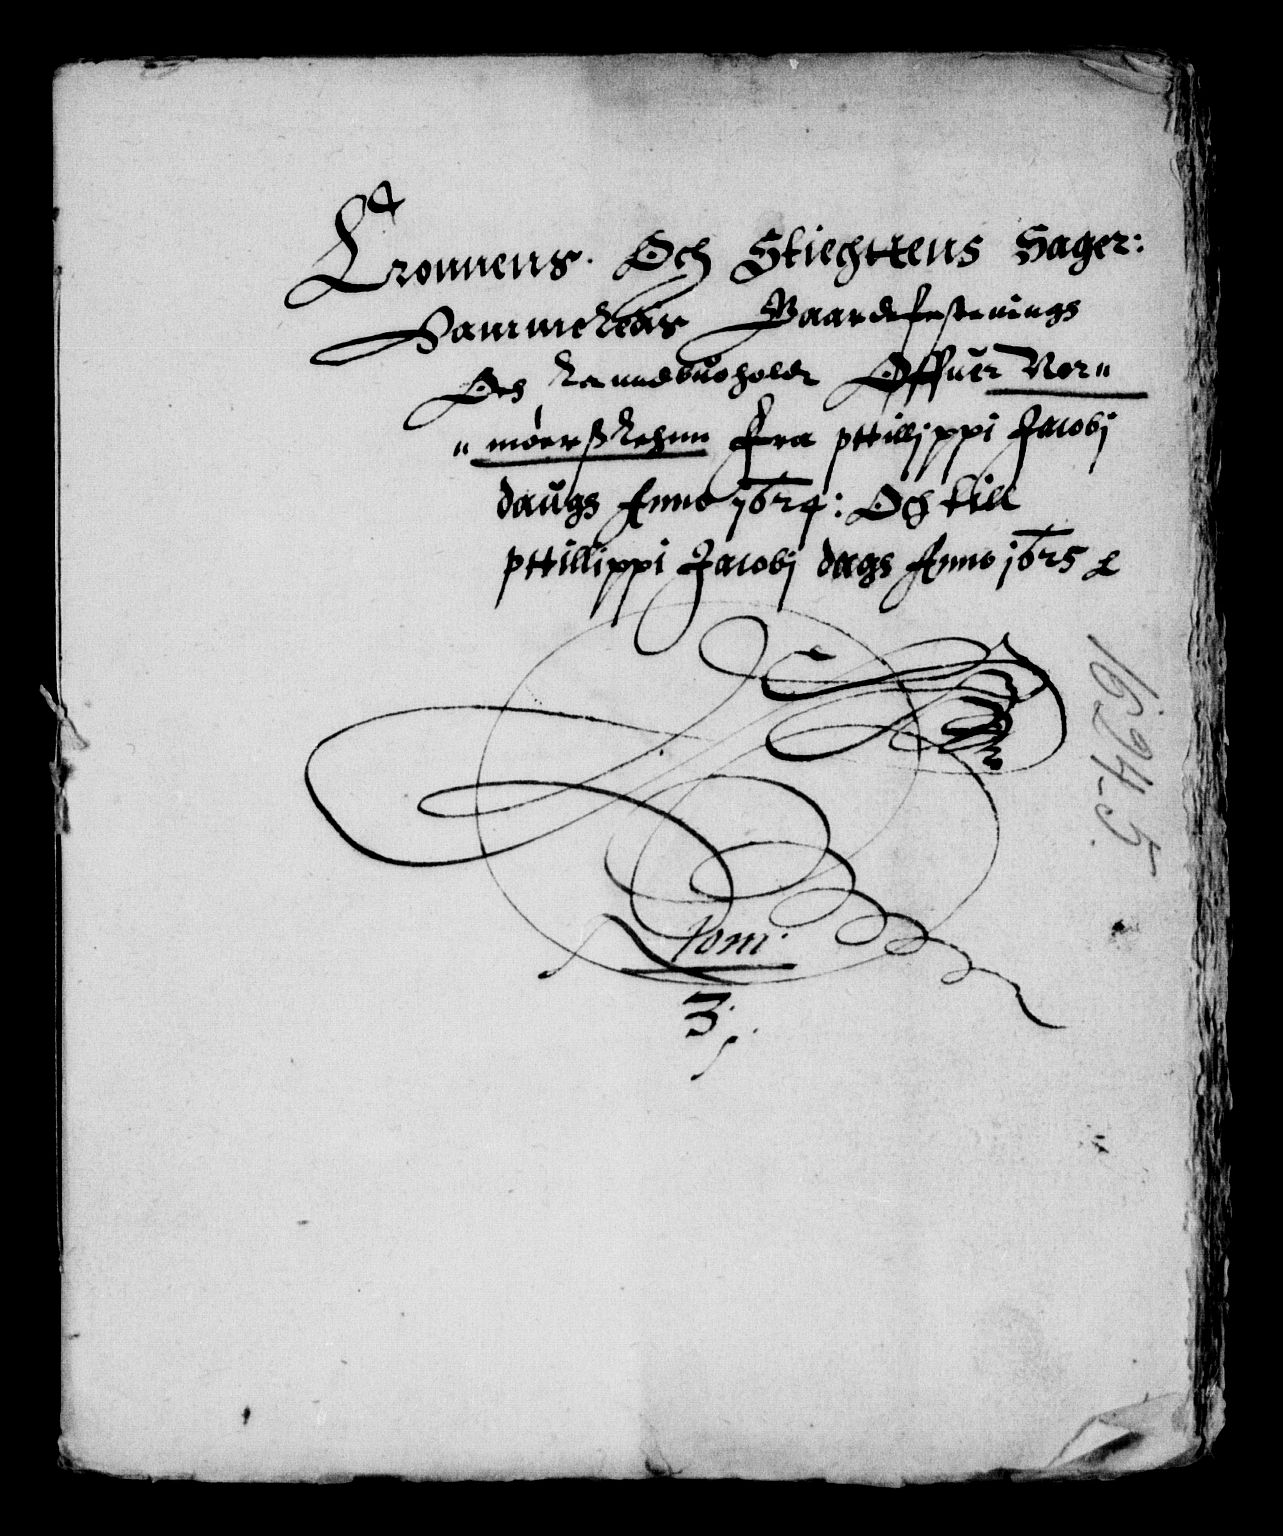 Cronnens. Och Stiechttens Sager:
Sammeledis Baardefestenings
Och Landbuoholdt Offuer Nor"
" møerß Lehnn fra pttillippi Jacobj
daugs Anno 1624: Och till
pttillippi Jacobj dags Anno 1625
Tom:
3
1624-5